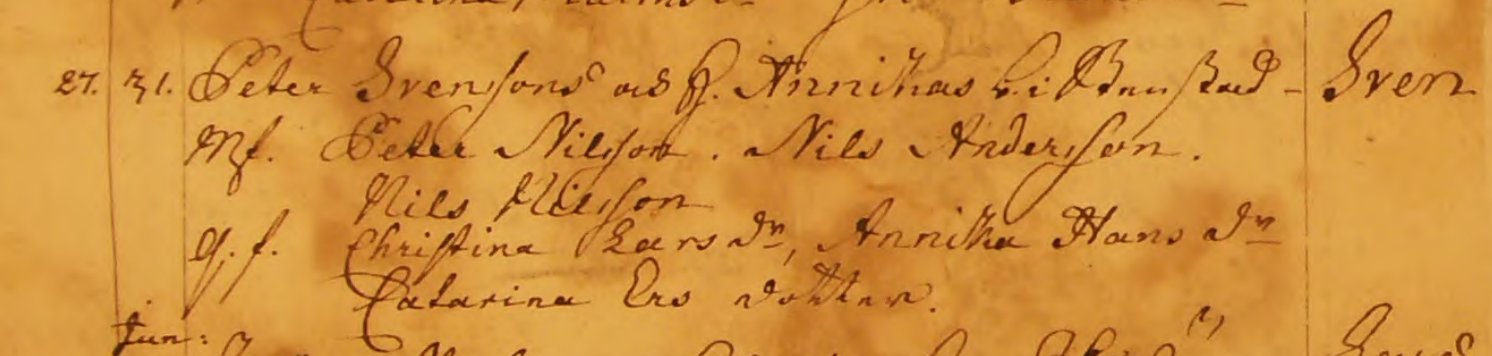 27. 31. Peter Svensons och H. Annikas i Stensstad - Sven
Mf. Peter Nilsson. Nils Anderson.
Nils Nilsson
Q. f. Christina Lars dr, Annika Hans dr
Catarina Ers dotter.
Jun: